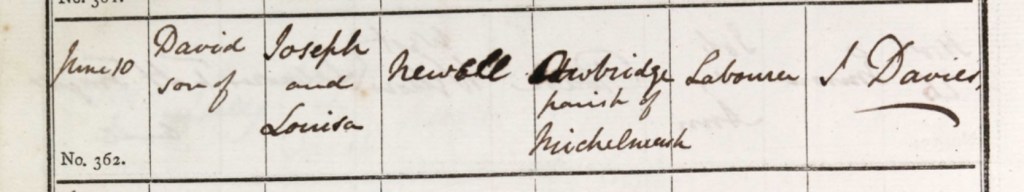 June 10 David Joseph Newell Awbridge Labourer J Davies
son of and parish of
Louisa Michelmersh
No. 362.